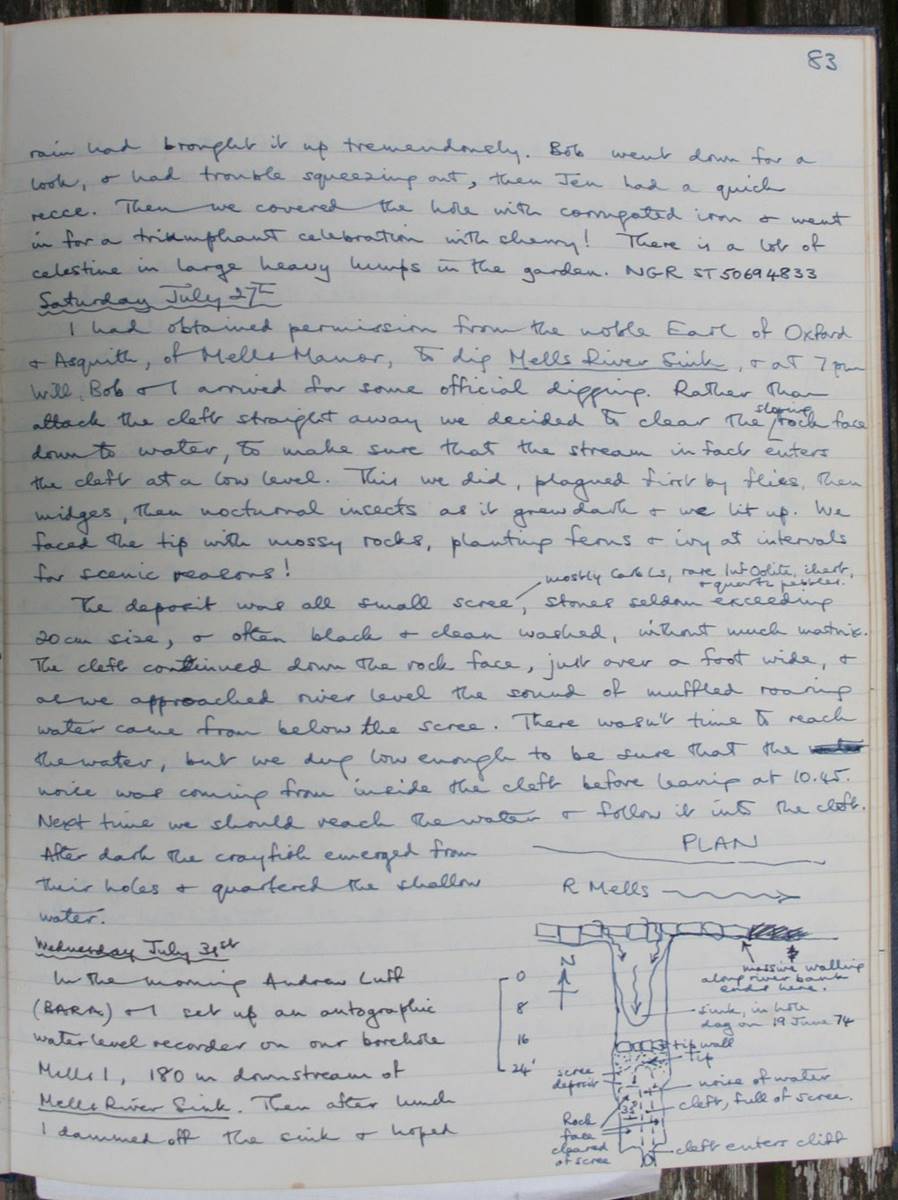 83
rain had brought it up tremendously. Bob went down for a
look, & had trouble squeezing out, then Jen had a quick
recce. Then we covered the hole with corrugated iron & went
in for a triumphant celebration with cherry! There is a lot of
celestine in large heavy lumps in the garden. NGR ST 50694833
Saturday July 27th
I had obtained permission from the noble Earl of Oxford
& Asquith, of Mells Manor, to dig Mells River Sink, & at 7pm
Will, Bob & I arrived for some official digging. Rather than
attack the cleft straight away we decided to clear the sloping rock face
down to water, to make sure that the stream in fact enters
the cleft at a low level. This we did, plagued first by flies, then
midges, then nocturnal insects as it grew dark & we lit up. We
faced the tip with mossy rocks, planting ferns & ivy at intervals
for scenic reasons!
mostly Carb Ls, rare Inf Oolite, chert,
& quartz pebbles.
The deposit was all small scree, stones seldom exceeding
20cm size, & often black & clean washed, without much matrix.
The cleft continued down the rock face, just over a foot wide, &
as we approached river level the sound of muffled roaring
water came from below the scree. There wasn't time to reach
the water, but we dug low enough to be sure that the
noise was coming from inside the cleft before leaving at 10.45.
Next time we should reach the water & follow it into the cleft.
After dark the crayfish emerged from
their holes & quartered the shallow
water.
Wednesday July 31st
In the morning Andrew Luff
(BARA) & I set up an autographic
water level recorder on our borehole
Mells 1, 180 m downstream of
Mells River Sink. Then after lunch
I dammed off the sink & hoped
PLAN
R Mells
N
0
8
16
24'
massive walling
along river bank
ends here.
sink, in hole
dug on 19 June 74
tip wall
tip
scree
deposit
noise of water
cleft, full of scree.
35°
Rock
face
cleared
of scree
cleft enters cliff